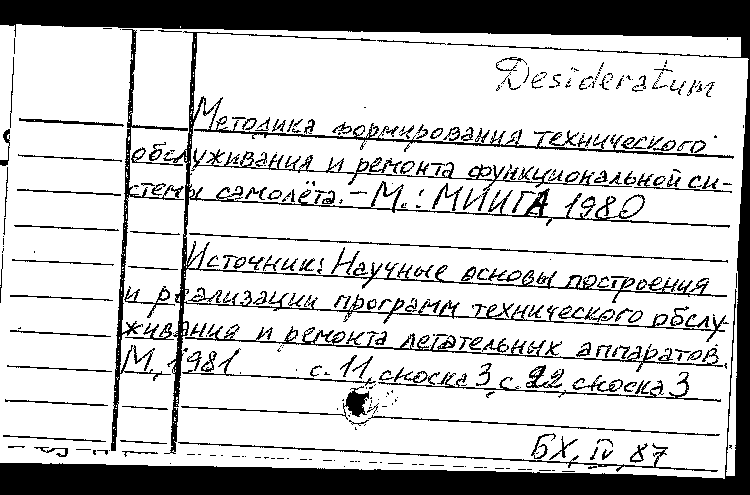 Desideratum
Методика формирования технического
обслуживания и ремонта функциональной си-
стемы самолёта. – М.: МИИГА, 1980
Источник: Научные основы построения
и реализации программ технического обслу-
живания и ремонта летательных аппаратов.
М, 1981. с. 11, сноска 3, с. 22, сноска 3
БХ, IV, 87